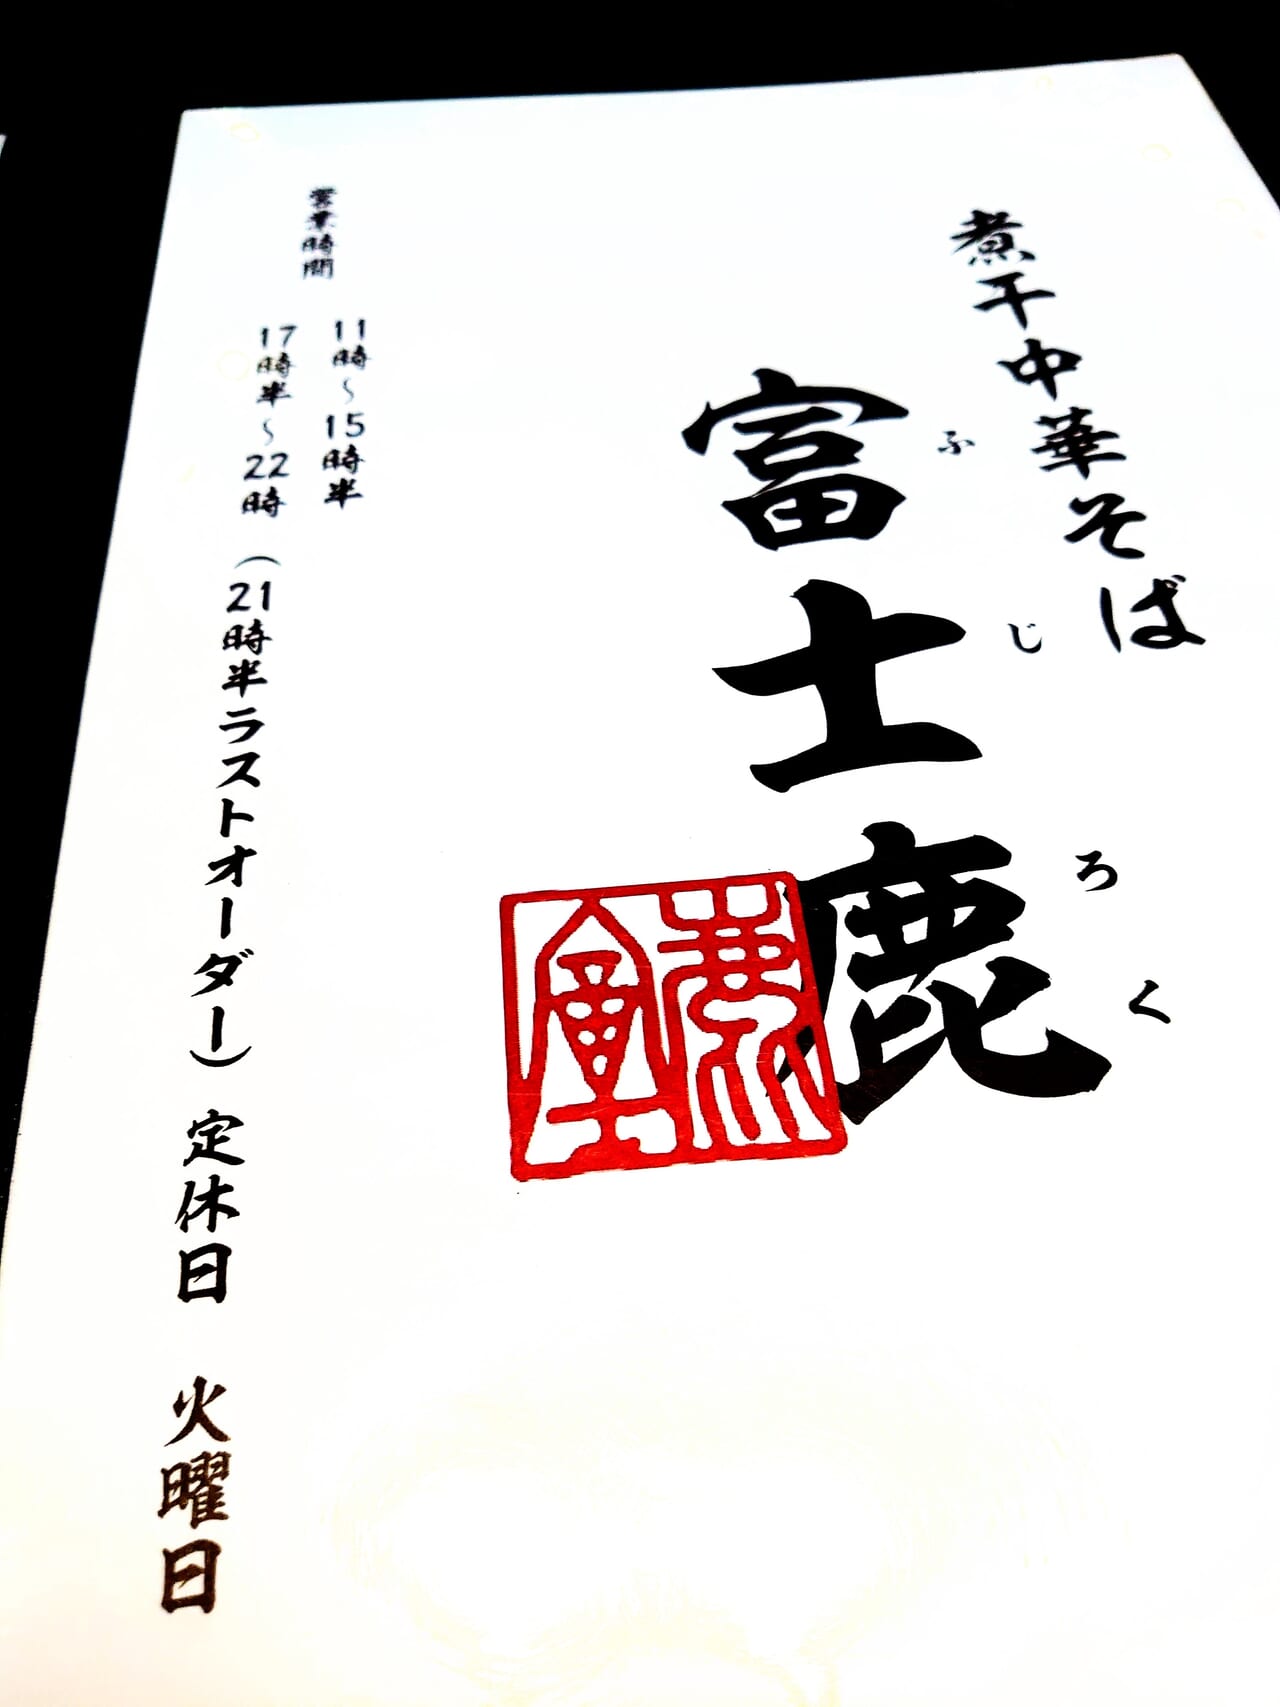 煮干中華そば
富士鹿
ふじろく
営業時間
11時～15時半
17時半～22時（21時半ラストオーダー）定休日 火曜日